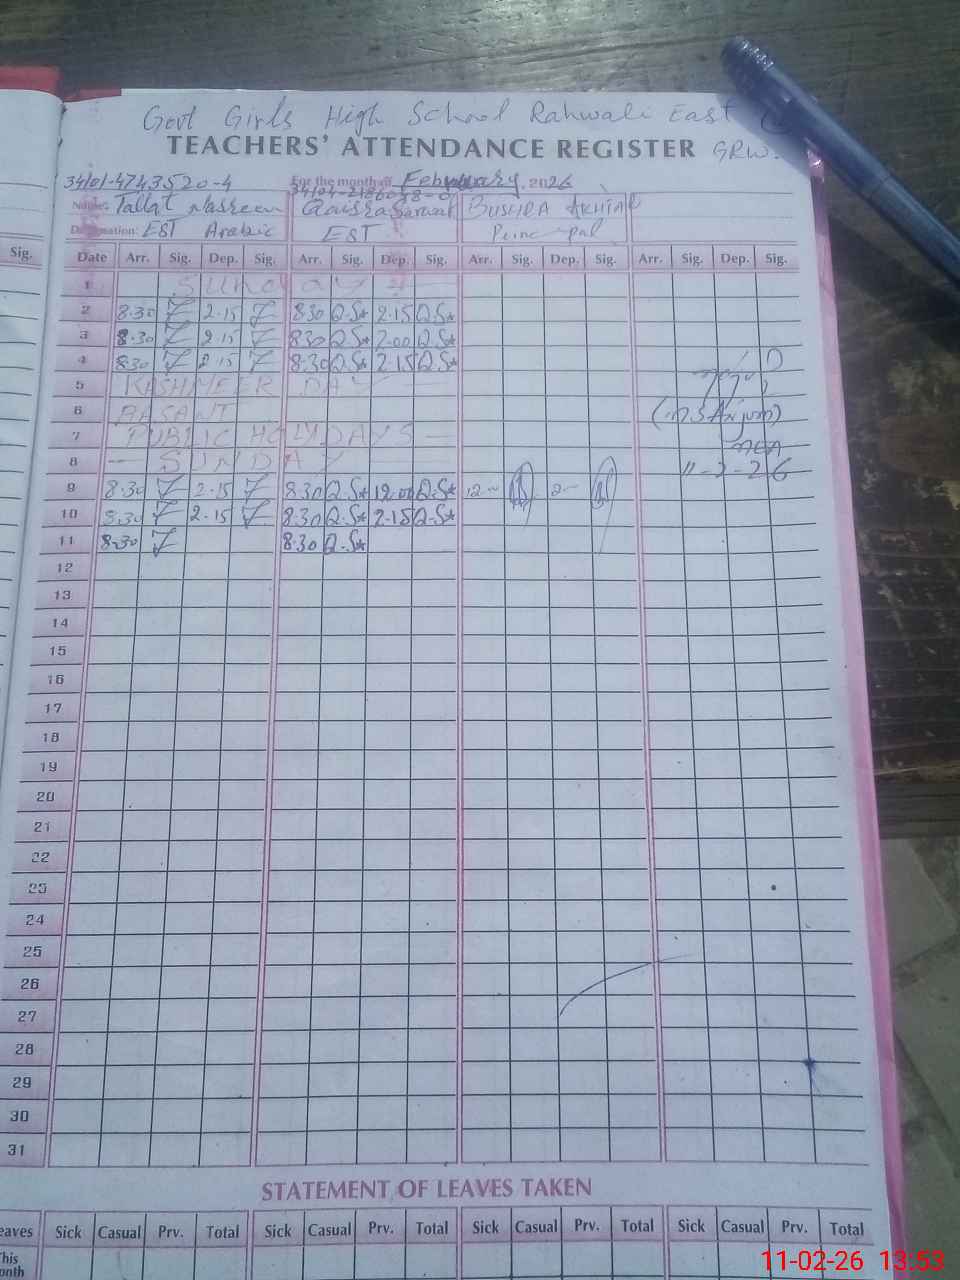 Govt Girls High School Rahwali East
TEACHERS' ATTENDANCE REGISTER GRW.
34101-4743520-4 For the month of February, 2026
Name: Tallat Nasreen Qaisra Sarwar BUSHRA AKHTAR
Designation: EST Arabic EST Principal
Sig. Date Arr. Sig. Dep. Sig. Arr. Sig. Dep. Sig. Arr. Sig. Dep. Sig. Arr. Sig. Dep. Sig.
1 SUNDAY
2 8.30 2.15 8.30 Q.S* 2.15 Q.S*
3 8.30 2.15 8.30 Q.S* 2.00 Q.S*
4 8.30 2.15 8.30 Q.S* 2.15 Q.S*
5 KASHMEER DAY
6 BASANT (M.S Anjum)
7 PUBLIC HOLYDAYS
8 — SUNDAY — 11-2-26
9 8.30 2.15 8.30 Q.S* 12.00 Q.S* 12 — 2 —
10 8.30 2.15 8.30 Q.S* 2.15 Q.S*
11 8.30 8.30 Q.S*
12
13
14
15
16
17
18
19
20
21
22
23
24
25
26
27
28
29
30
31
STATEMENT OF LEAVES TAKEN
eaves Sick Casual Prv. Total Sick Casual Prv. Total Sick Casual Prv. Total Sick Casual Prv. Total
This
onth
11-02-26 13:53